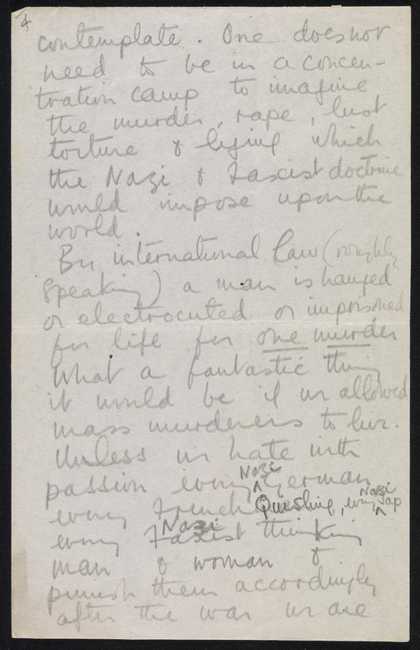 4
contemplate. One does not
need to be in a concen-
tration camp to imagine
the murder, rape, lust
torture & lying which
the Nazi & Fascist doctrine
would impose upon the
world.
By international law (roughly
speaking) a man is hanged
or electrocuted or imprisoned
for life for one murder
What a fantastic thing
it would be if we allowed
mass murderers to live.
Unless we hate with
passion every Nazi German
every French Quisling, every Nazi Jap
every Fascist Nazi thinking
man & woman &
punish them accordingly
after the war we are